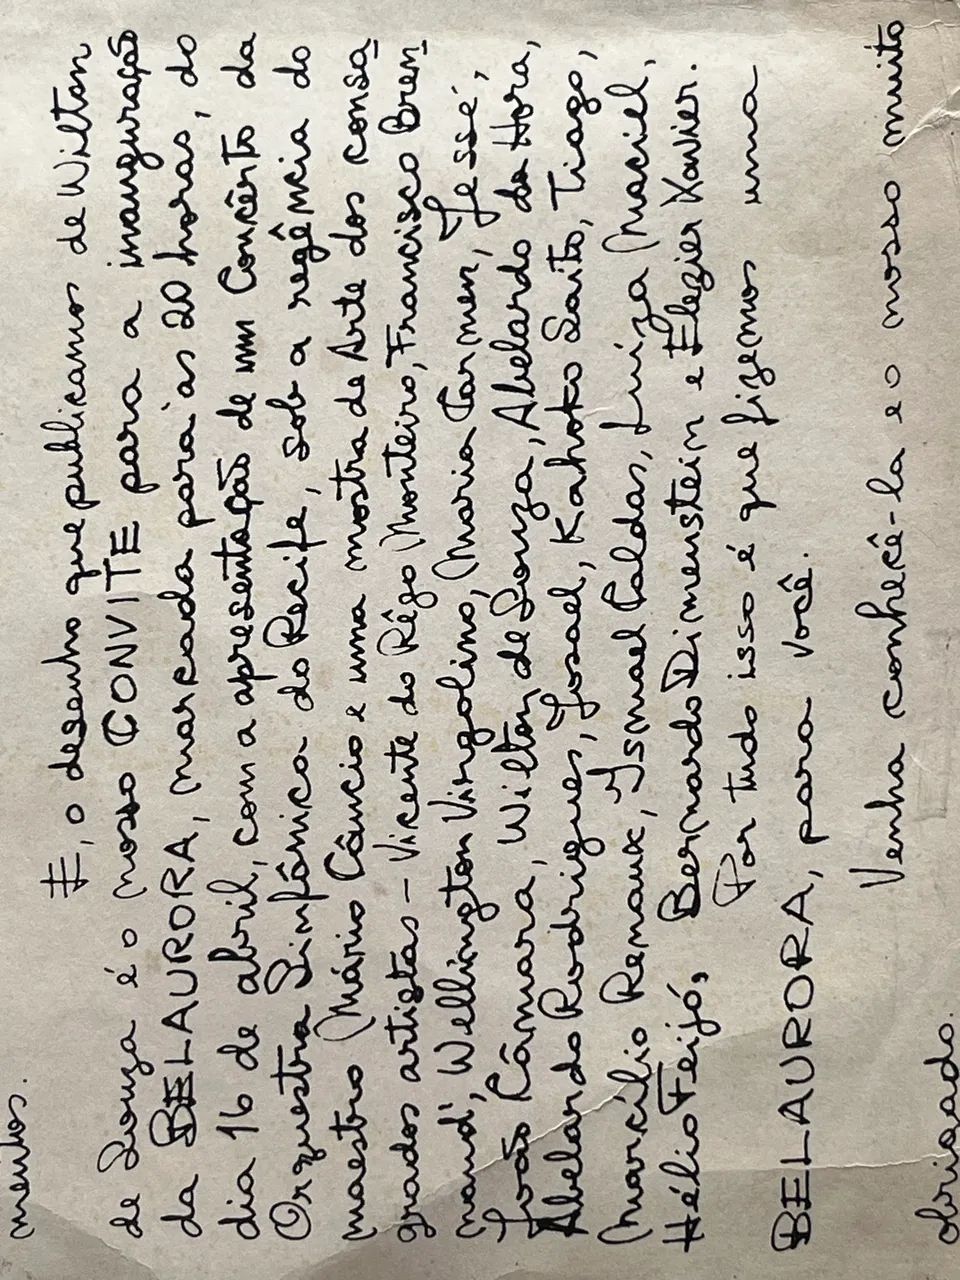 meinhos.
E, o desenho que publicamos de Wilton
de Souza é o nosso CONVITE para a inauguração
da BELAURORA, marcada para às 20 horas, do
dia 16 de abril, com a apresentação de um Concêrto da
Orquestra Sinfônica do Recife, sob a regência do
maestro Mário Câncio e uma mostra de Arte dos consa
grados artistas - Vicente do Rêgo Monteiro, Francisco Bren
nand, Wellington Virgolino, Maria Carmen, Jessé,
João Câmara, Wilton de Souza, Abelardo da Hora,
Abelardo Rodrigues, Josael, Kahoko Saito, Tiago,
Marcílio Remaux, Ismael Caldas, Luiza Maciel,
Hélio Feijó, Bernardo Dimenstein e Elezier Xavier.
Por tudo isso é que fizemos uma
BELAURORA, para você.
Venha conhecê-la e o nosso muito
obrigado.